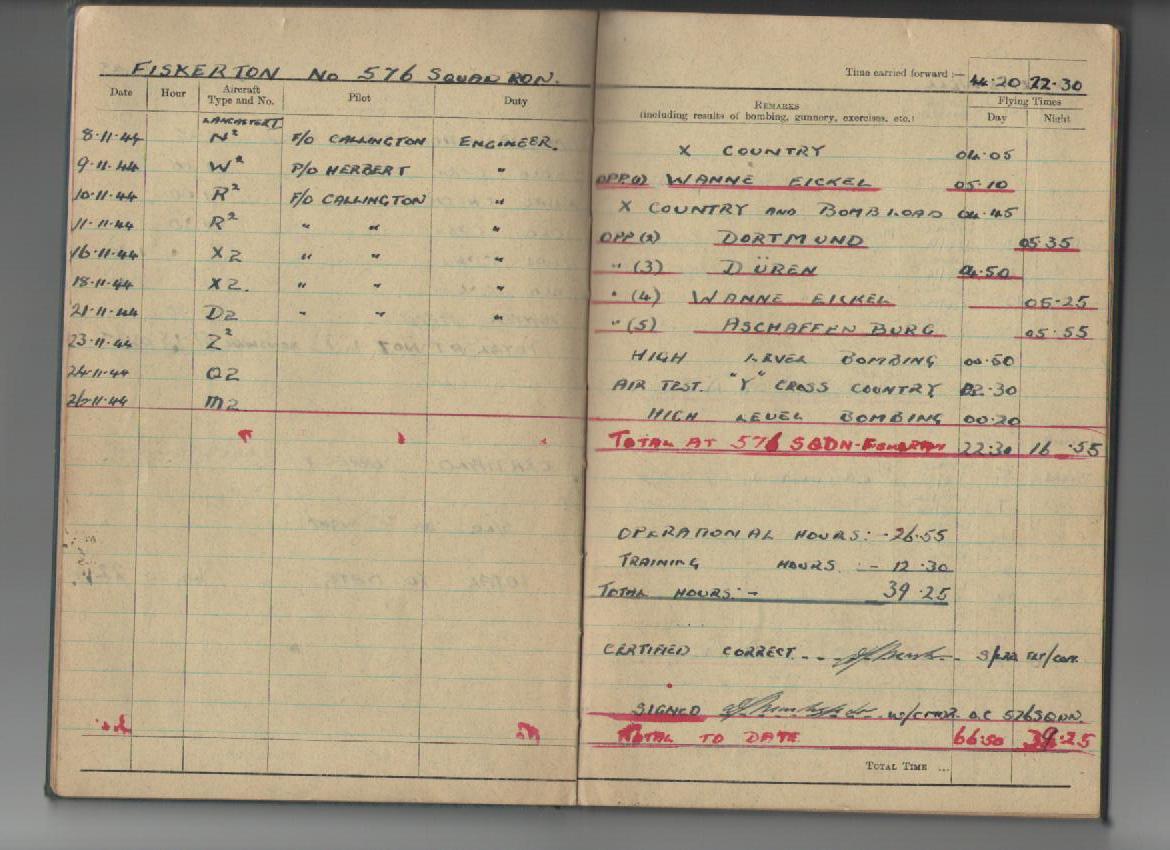 FISKERTON No 576 SQUADRON.
Time carried forward :— 44.20 22.30
Date Hour Aircraft Type and No. Pilot Duty
REMARKS (including results of bombing, gunnery, exercises, etc.) Flying Times Day Night
LANCASTER I
8.11.44 N² F/O CALLINGTON ENGINEER. X COUNTRY 04.05
9.11.44 W² P/O HERBERT " OPP(1) WANNE EICKEL 05.10
10.11.44 R² F/O CALLINGTON " X COUNTRY AND BOMBLOAD 04.45
11.11.44 R² " " " OPP(2) DORTMUND 05.35
16.11.44 X2 " " " " (3) DÜREN 04.50
18.11.44 X2. " " " " (4) WANNE EICKEL 05.25
21.11.44 D2 " " " " (5) ASCHAFFENBURG 05.55
23.11.44 Z² HIGH LEVEL BOMBING 00.50
24.11.44 Q2 AIR TEST. "Y" CROSS COUNTRY 02.30
26.11.44 M2 HIGH LEVEL BOMBING 00.20
TOTAL AT 576 SQDN-FISKERTON 22.30 16.55
OPERATIONAL HOURS: - 26.55
TRAINING HOURS :- 12.30
TOTAL HOURS: - 39.25
CERTIFIED CORRECT S/LDR FLT/COM.
SIGNED W/CMDR. O.C 576 SQDN.
TOTAL TO DATE 66.50 39.25
TOTAL TIME ...